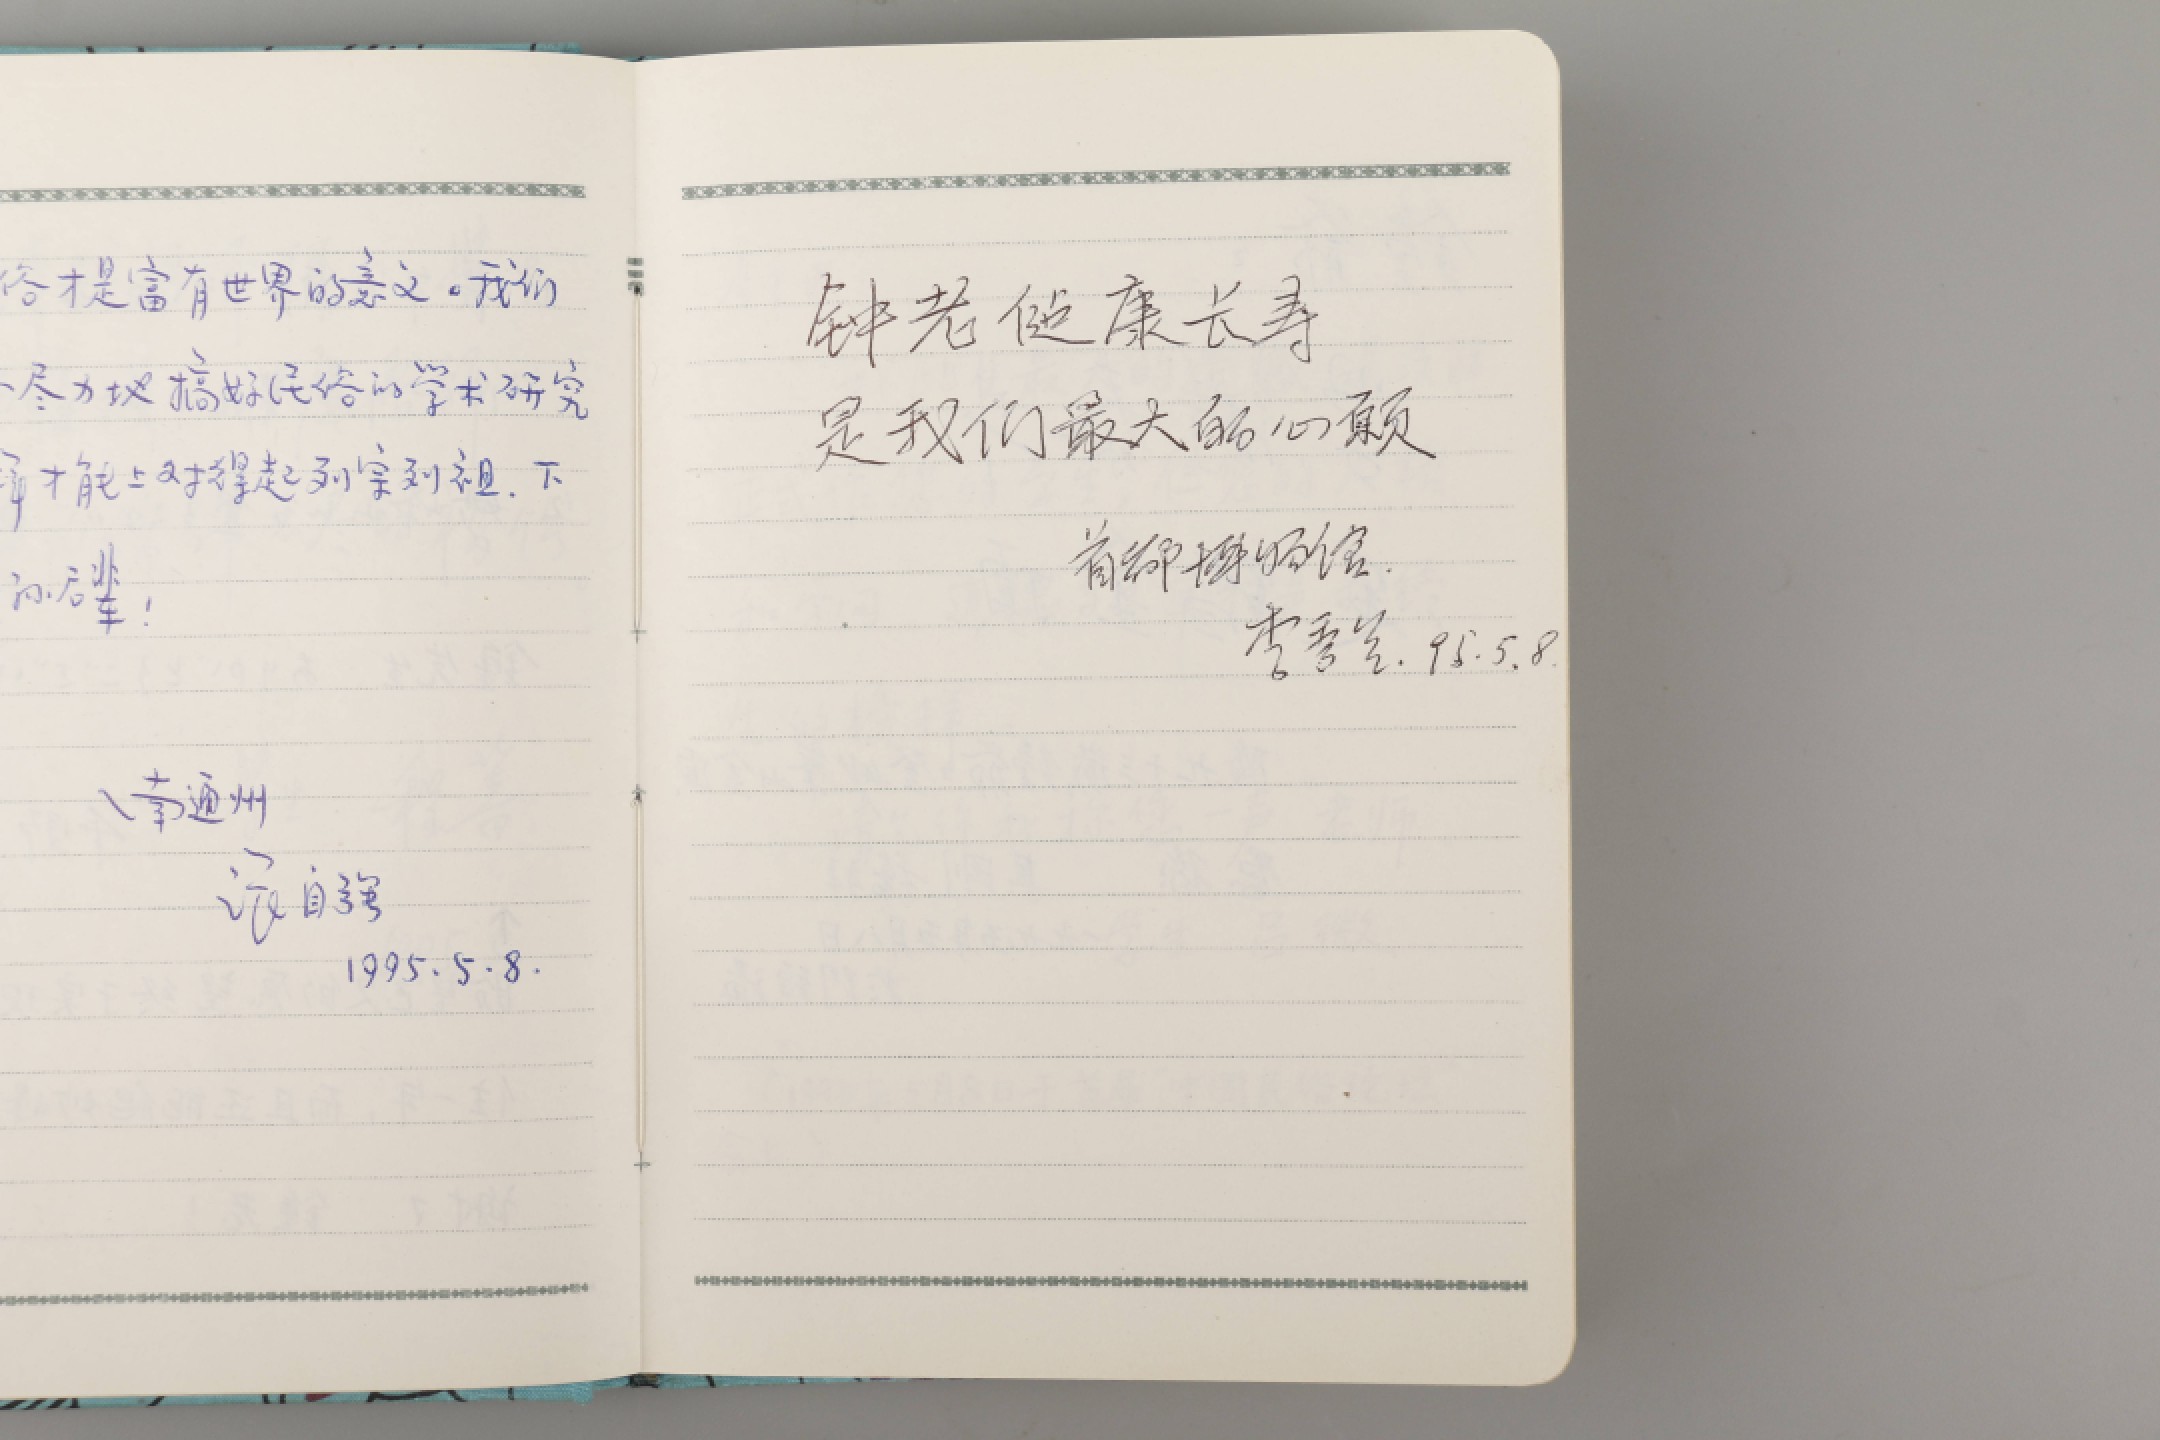 俗才是富有世界的意义。我们
尽力地搞好民俗的学术研究
才能上对得起列宗列祖.下
的后辈!
南通州
自强
1995.5.8.
钟老健康长寿
是我们最大的心愿
首都博物馆.
李秀兰.95.5.8.